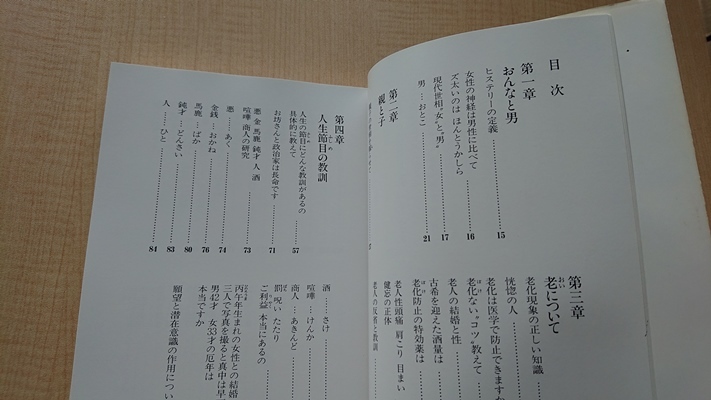 目次
第一章
おんなと男
ヒステリーの定義……15
女性の神経は男性に比べて
ズ太いのは ほんとうかしら……16
現代世相“女”と“男”……17
男……おとこ……21
第二章
親と子
第三章
老について
恍惚の人
老化現象の正しい知識
老化は医学で防止できますか
老化ない“コツ”教えて
老人の結婚と性
古希を迎えた酒量は
老化防止の特効薬は
老人性頭痛 肩こり 目まい
健忘の正体
老人の反省と教訓
第四章
人生節目の教訓
人生の節目にどんな教訓があるの
具体的に教えて……57
お坊さんと政治家は長命です……71
悪 金 馬鹿 鈍才 人 酒
喧嘩 商人の研究……73
悪……あく……74
金銭……おかね……76
馬鹿……ばか……80
鈍才……どんさい……83
人……ひと……84
酒……さけ
喧嘩……けんか
商人……あきんど
罰 呪い たたり
ご利益 本当にあるの
丙午年生まれの女性との結婚
三人で写真を撮ると真中は早
男42才 女33才の厄年は
本当ですか
願望と潜在意識の作用につい